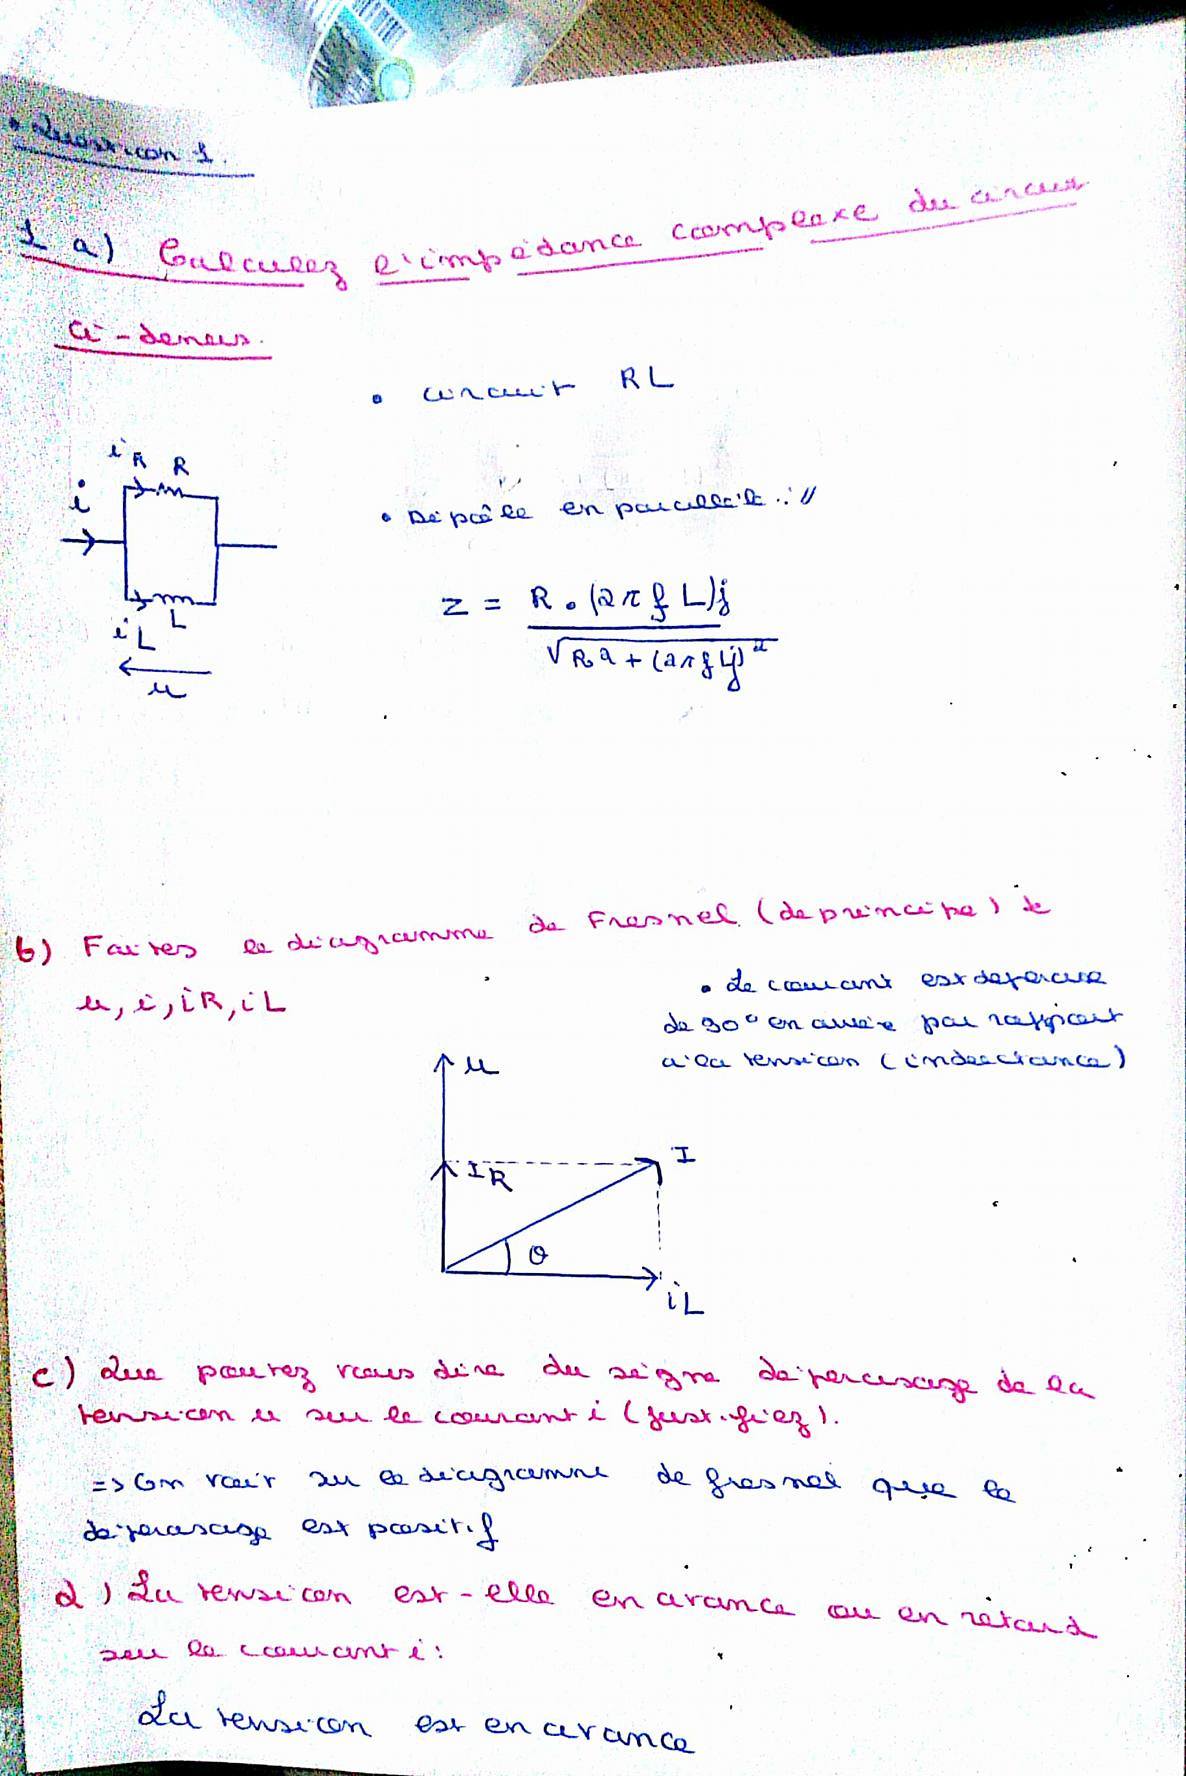 • Question 1.
1 a) Calculez l'impédance complexe du circuit
ci-dessus.
• circuit RL
iR R
i
• Dipôle en parallèle //
Z = R . (2πfL)j
√R2 + (2πfLj)²
L
iL
u
b) Faites le diagramme de Fresnel (de principe) de
u, i, iR, iL
• Le courant est déphasé
de 90° en arrière par rapport
à la tension (inductance)
u
IR
I
θ
iL
c) Que pouvez vous dire du signe déphasage de la
tension u sur le courant i (justifiez).
=> On voit sur le diagramme de fresnel que le
déphasage est positif
d) La tension est-elle en avance ou en retard
sur le courant i:
La tension est en avance